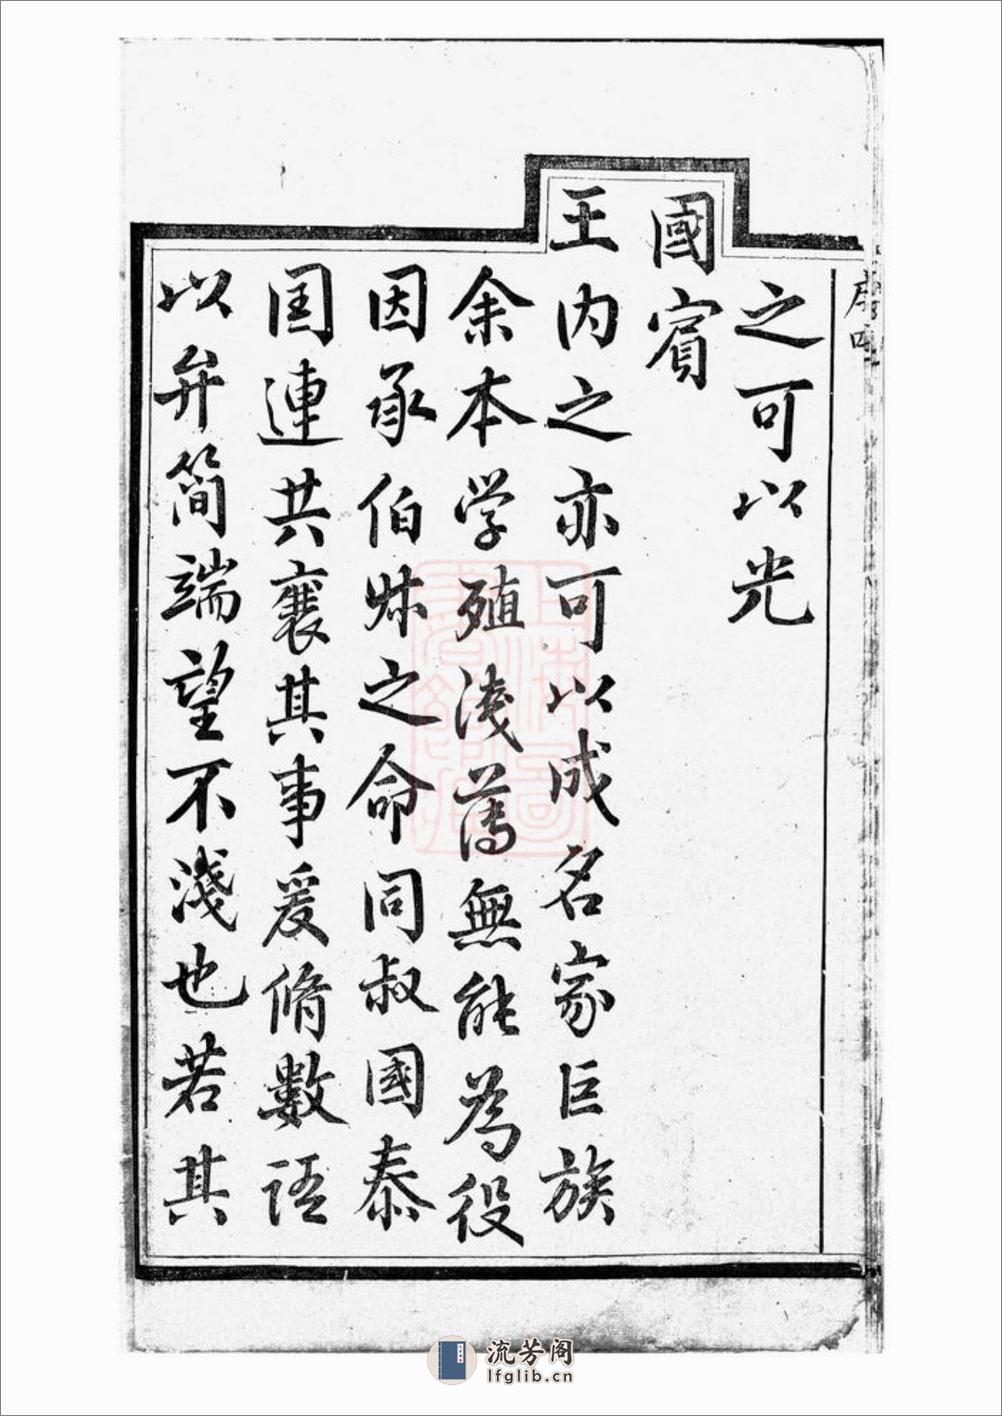 之可以光
國賓
王内之亦可以成名家巨族
余本学殖淺薄無能為役
因承伯叔之命同叔國泰
囯連共襄其事爰脩數語
以弁简端望不淺也若其
流芳阁
lfglib.cn